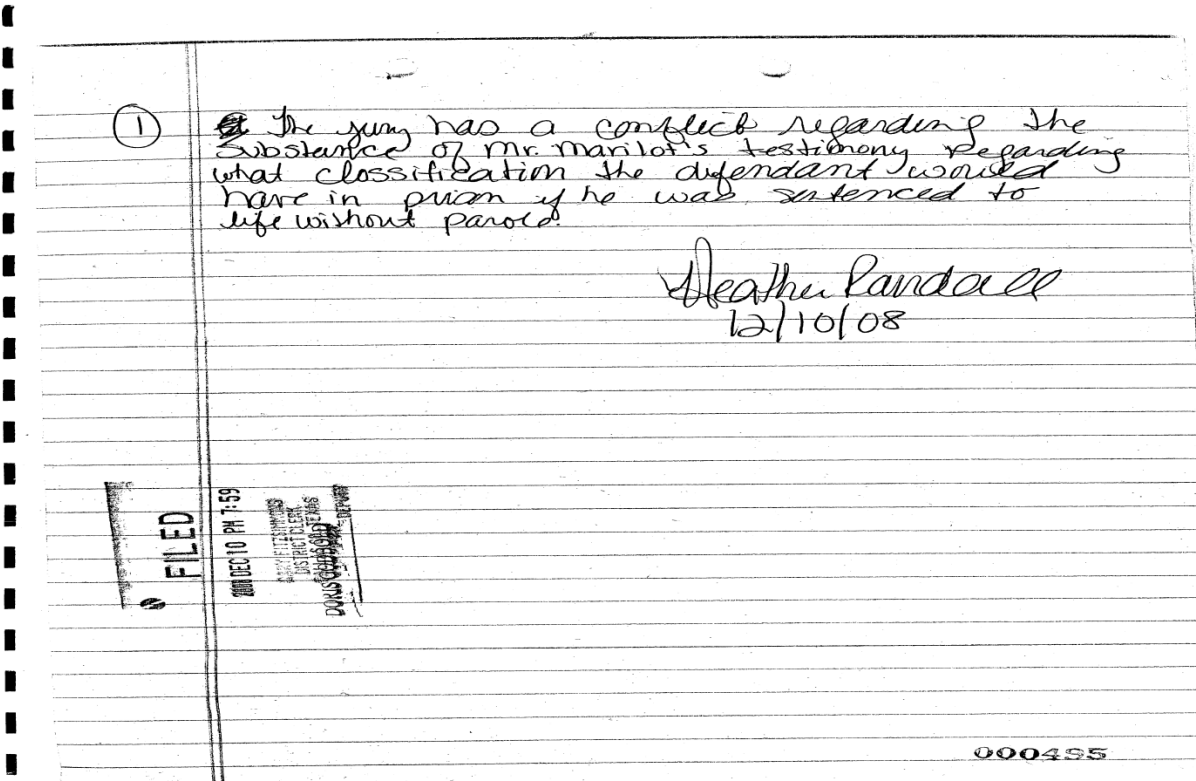 1
The jury has a conflict regarding the
substance of Mr. Marilot's testimony regarding
what classification the defendant would
have in prison if he was sentenced to
life without parole.
Heather Randall
12/10/08
FILED
DEC 10 PM 7:59
DISTRICT CLERK
DEPUTY
000485